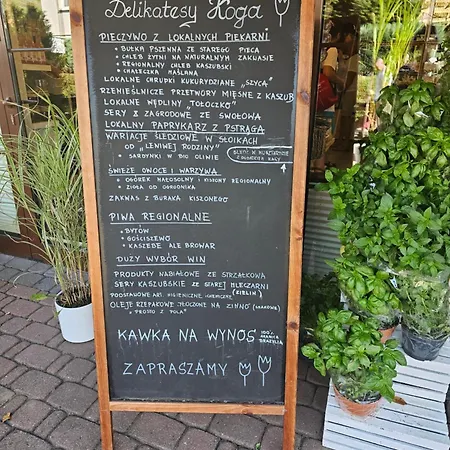 Delikatesy Koga
PIECZYWO Z LOKALNYCH PIEKARNI
• BUŁKA PSZENNA ZE STAREGO PIECA
• CHLEB ŻYTNI NA NATURALNYM ZAKWASIE
• REGIONALNY CHLEB KASZUBSKI
• CHAŁECZKA MAŚLANA
LOKALNE CHRUPKI KUKURYDZIANE „SZYCA”
RZEMIEŚLNICZE PRZETWORY MIĘSNE Z KASZUB
LOKALNE WĘDLINY "TOŁOCZKO"
SERY ZAGRODOWE ZE SWOŁOWA
LOKALNY PAPRYKARZ Z PSTRĄGA
WARIACJE ŚLEDZIOWE W SŁOIKACH
OD „LENIWEJ RODZINY”
• SARDYNKI W BIO OLIWIE
ŚWIEŻE OWOCE I WARZYWA
• OGÓREK MAŁOSOLNY I KISZONY REGIONALNY
• ZIOŁA OD OGRODNIKA
ZAKWAS Z BURAKA KISZONEGO
PIWA REGIONALNE
• BYTÓW
• GOŚCISZEWO
• KASZEBE ALE BROWAR
DUŻY WYBÓR WIN
PRODUKTY NABIAŁOWE ZE STRZAŁKOWA
SERY KASZUBSKIE ZE STAREJ MLECZARNI
PODSTAWOWE ART. HIGIENICZNE I CHEMICZNE (KIBLIN)
OLEJE RZEPAKOWE TŁOCZONE NA ZIMNO
• PROSTO Z POLA
KAWKA NA WYNOS 100% ARABICA BRAZYLIA
ZAPRASZAMY